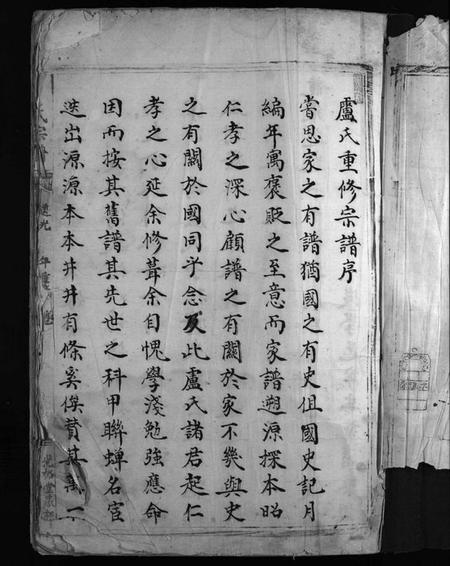 盧氏重修宗譜序
嘗思家之有譜猶國之有史但國史記月
編年寓褒貶之至意而家譜遡源探本昭
仁孝之深心顧譜之有關於家不幾與史
之有關於國同乎念及此盧氏諸君起仁
孝之心延余修葺余自愧學淺勉強應命
因而按其舊譜其先世之科甲聯蟬名宦
迭出源源本本井井有條奚俟贊其萬一
氏宗
道光 年